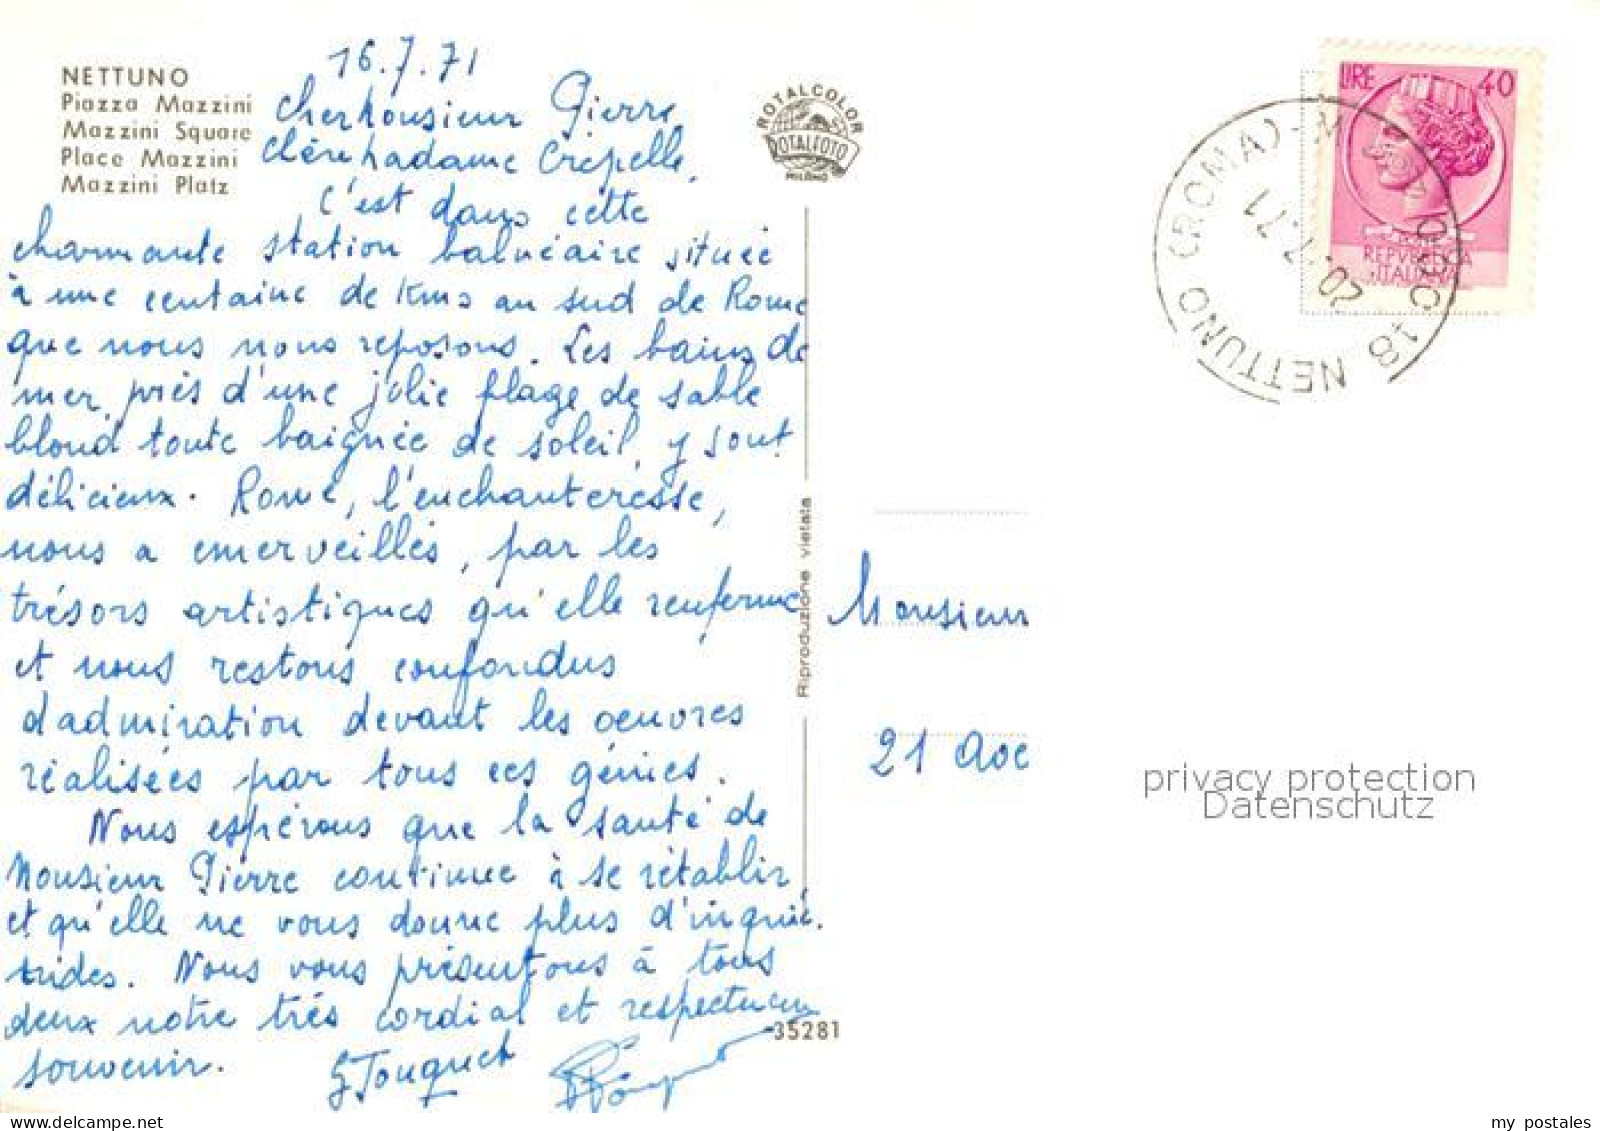 NETTUNO
Piazza Mazzini
Mazzini Square
Place Mazzini
Mazzini Platz
16.7.71
Cher Monsieur Pierre,
Chère Madame Crepelle,
C'est dans cette
charmante station balnéaire située
à une centaine de Kms au sud de Rome
que nous nous reposons. Les bains de
mer, près d'une jolie plage de sable
blond toute baignée de soleil, y sont
délicieux. Rome, l'enchanteresse,
nous a émerveillés, par les
trésors artistiques qu'elle renferme
et nous restons confondus
d'admiration devant les oeuvres
réalisées par tous ces génies.
Nous espérons que la santé de
Monsieur Pierre continue à se rétablir,
et qu'elle ne vous donne plus d'inquié-
tudes. Nous vous présentons à tous
deux notre très cordial et respectueux
souvenir. G Touquet
ROTALCOLOR
ROTALFOTO
MILANO
Riproduzione vietata
35281
LIRE 40
REPVBBLICA
ITALIANA
NETTUNO (ROMA)
20.7.71
18 NETTUNO
Monsieur
21 Aoe
privacy protection
Datenschutz
my postales